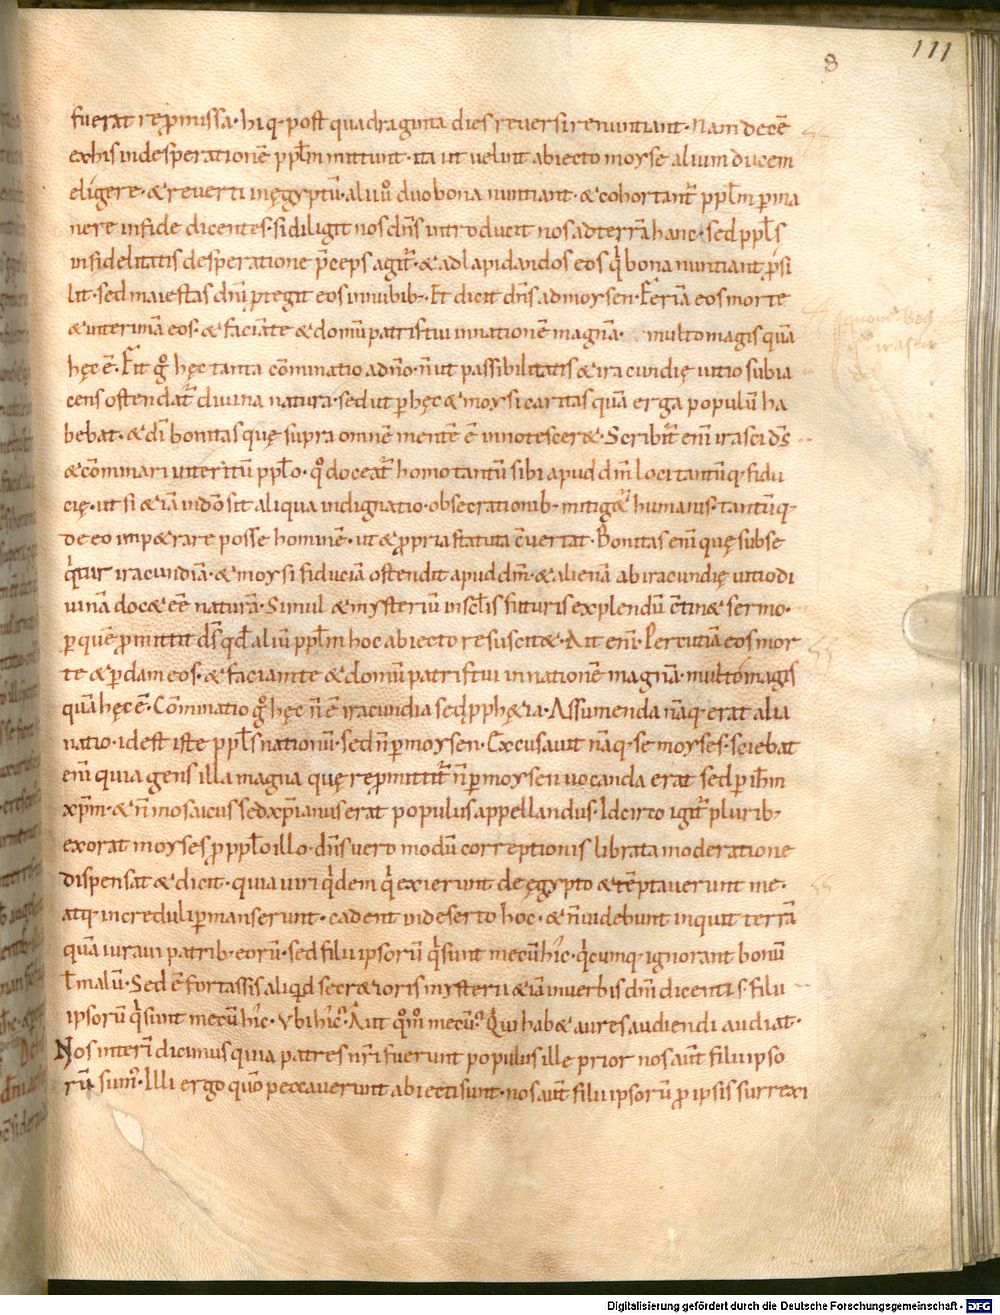 8
111
fuerat rep̄missa· hi q· post quadraginta dies reuersi renuntiant· Nam decē
ex his in desperationē pp̄lm mittunt· ita ut uelint abiecto moyse alium ducem
eligere· & reuerti in ęgyptū· alii ū duo bona nuntiant· & cohortant̄ pp̄lm p̄ma
nere in fide dicentes· si diligit nos dn̄s introducit nos ad terrā hanc· sed pp̄ls
infidelitatis desperatione p̄ceps agit̄· & ad lapidandos eos qi bona nuntiant p̄si
lit· sed maiestas dn̄i p̄tegit eos in nubib;· Et dicit dn̄s ad moysen· Feriā eos morte
& interimā eos· & faciā te & domū patris tui in nationē magnā· multo magis quā
hęc ē· Fit gͦ hęc tanta cōminatio a dn̄o· n̄ ut passibilitatis & iracundię uitio subia
cens ostendat̄ diuina natura· sed ut p̄ hęc & moysi caritas quā erga populū ha
bebat· & dī bonitas quę supra omnem mentē ē innotescer&· Scribit̄ enī irasci ds̄
& cōminari interitū pp̄lo· qͦ doceat̄ homo tantū sibi apud dm̄ loci tantūq; fidu
cię· ut si & iā in dō sit aliqua indignatio· obsecrationib; mitig&̄ humanis· tantūq;
de eo impetrare posse hominē· ut & p̄pria statuta c̄uertat· Bonitas enī quę subse
qitur iracundiā· & moysi fiduciā ostendit apud dm̄· & alienā ab iracundię uitio di
uinā doc& eē naturā· Simul & mysteriū in sc̄lis futuris explendū c̄tin& sermo·
p̄ quē p̄mittit ds̄ qd̄ aliū pp̄lm hoc abiecto resuscit&· Ait enī· Percutiā eos mor
te & p̄dam eos· & faciam te & domū patris tui in nationē magnā· multo magis
quā hęc ē· Cōminatio gͦ hęc n̄ ē iracundia sed p̄ph&ia· Assumenda nāq; erat alia
natio· id est iste pp̄ls nationū· sed n̄ p̄ moysen· Excusauit nāq; se moyses· sciebat
enī quia gens illa magna quę rep̄mittit̄ n̄ p̄ moysen uocanda erat sed p̄ ih̄m
xp̄m· & n̄ mosaicus sed xp̄ianus erat populus appellandus· Idcirco igit̄ plurib;
exorat moyses p̄ pp̄lo illo· dn̄s uero modū correptionis librata moderatione
dispensat & dicit· quia uiri qidem qi exierunt de ęgypto & tēptauerunt me·
atq; increduli p̄manserunt· cadent in deserto hoc· & n̄ uidebunt inquit terrā
quā iuraui patrib; eorū· sed filii ipsorū qi sunt mecū hic· qicumq; ignorant bonū
ł malū· Sed ē fortassis aliqid secr&ioris mysterii & iā in uerbis dn̄i dicentis· filii
ipsorū qi sunt mecū hic· Vbi hic? Aut qͦmͦ mecū? Qui hab& aures audiendi audiat·
Nos interī dicimus quia patres nr̄i fuerunt populus ille prior nos aūt filii ipso
rū sum'· Illi ergo quō peccauerunt abiecti sunt· nos aūt filii ipsorū p̄ ipsis surrexi
Digitalisierung gefördert durch die Deutsche Forschungsgemeinschaft · DFG